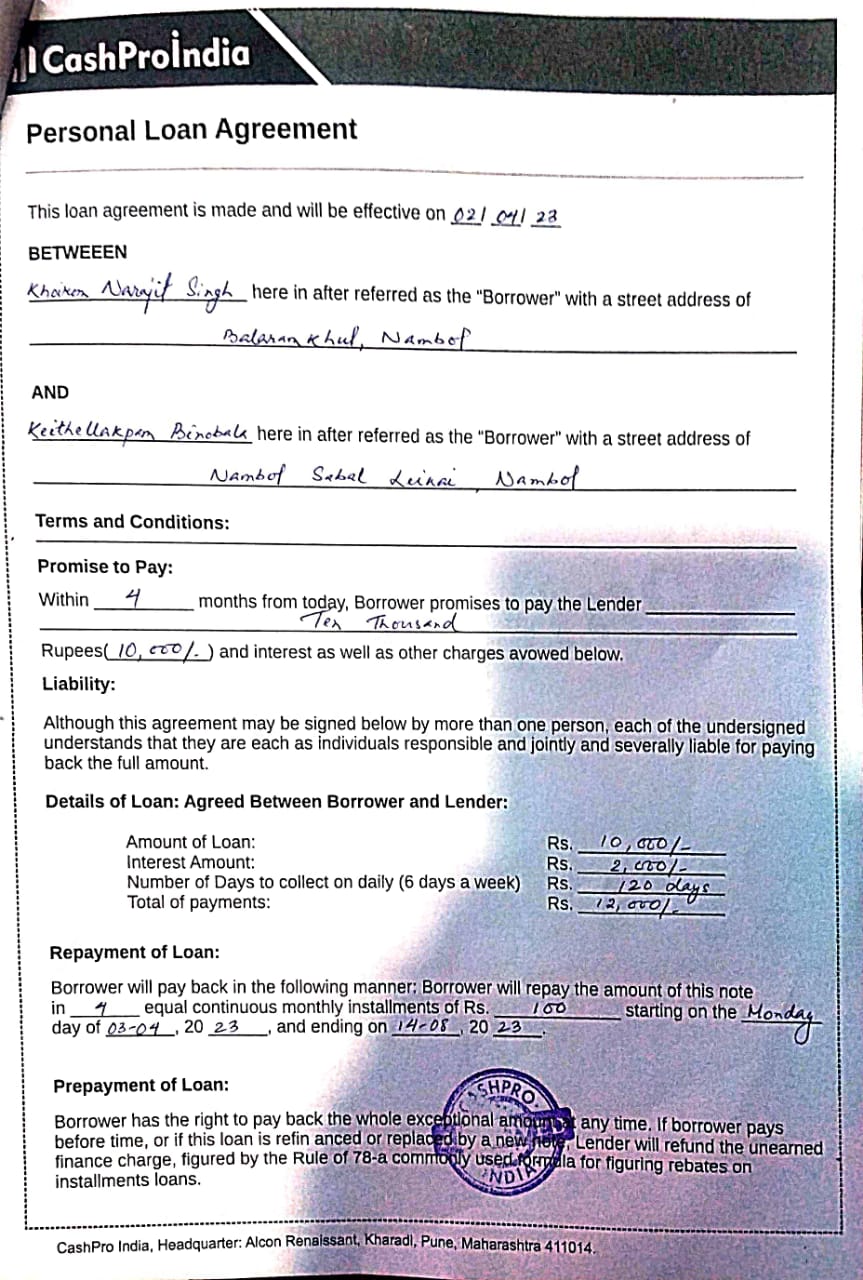 CashProIndia
Personal Loan Agreement
This loan agreement is made and will be effective on 02/ 04/ 23
BETWEEEN
Khoiken Narajit Singh here in after referred as the "Borrower" with a street address of
Balaram Khul, Nambol
AND
Keithellakpam Binobala here in after referred as the "Borrower" with a street address of
Nambol Sabal Leikai, Nambol
Terms and Conditions:
Promise to Pay:
Within 4 months from today, Borrower promises to pay the Lender
Ten Thousand
Rupees( 10,000/- ) and interest as well as other charges avowed below.
Liability:
Although this agreement may be signed below by more than one person, each of the undersigned
understands that they are each as individuals responsible and jointly and severally liable for paying
back the full amount.
Details of Loan: Agreed Between Borrower and Lender:
Amount of Loan: Rs. 10,000/-
Interest Amount: Rs. 2,000/-
Number of Days to collect on daily (6 days a week) Rs. 120 days
Total of payments: Rs. 12,000/-
Repayment of Loan:
Borrower will pay back in the following manner: Borrower will repay the amount of this note
in 4 equal continuous monthly installments of Rs. 100 starting on the Monday
day of 03-04, 20 23, and ending on 14-08, 20 23.
Prepayment of Loan:
CASHPRO
Borrower has the right to pay back the whole exceptional amount at any time. If borrower pays
before time, or if this loan is refin anced or replaced by a new note, Lender will refund the unearned
finance charge, figured by the Rule of 78-a commonly used formula for figuring rebates on
INDIA
installments loans.
CashPro India, Headquarter: Alcon Renaissant, Kharadi, Pune, Maharashtra 411014.